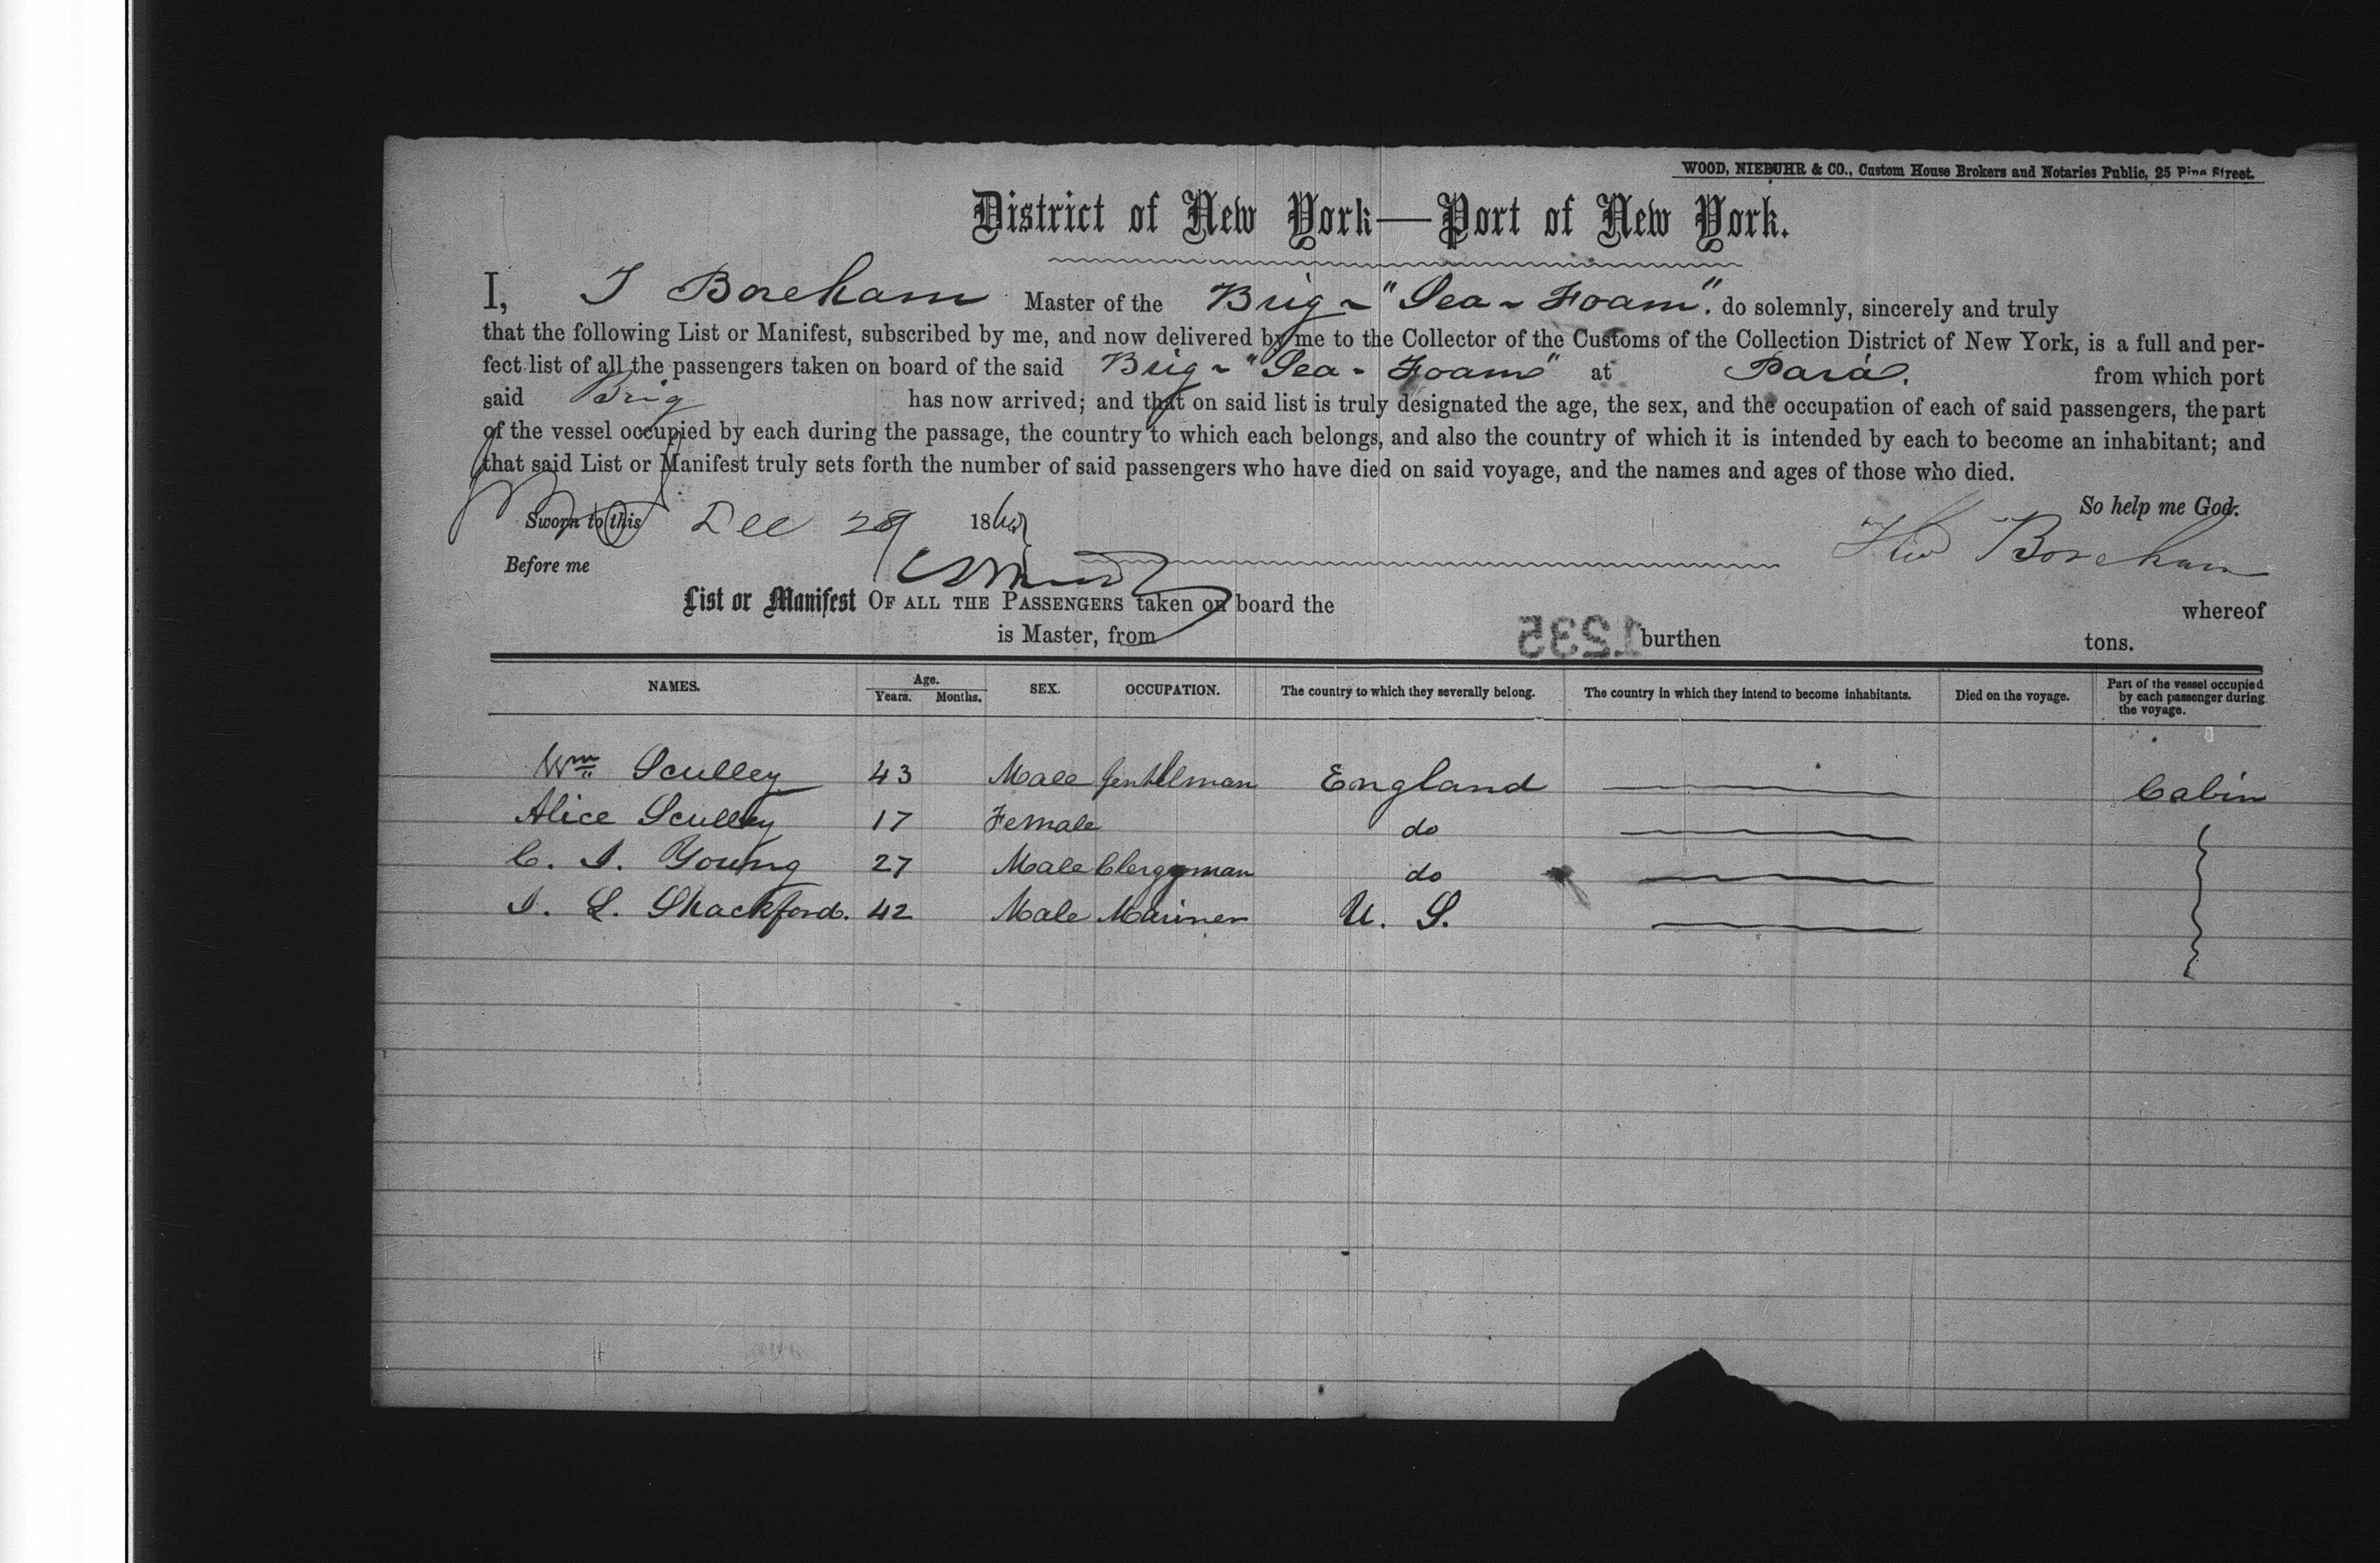 WOOD, NIEBUHR & CO., Custom House Brokers and Notaries Public, 25 Pine Street.
District of New York—Port of New York.
I, T Boreham Master of the Brig ~ "Sea ~ Foam". do solemnly, sincerely and truly
that the following List or Manifest, subscribed by me, and now delivered by me to the Collector of the Customs of the Collection District of New York, is a full and per-
fect list of all the passengers taken on board of the said Brig ~ "Sea - Foam" at Pará. from which port
said Brig has now arrived; and that on said list is truly designated the age, the sex, and the occupation of each of said passengers, the part
of the vessel occupied by each during the passage, the country to which each belongs, and also the country of which it is intended by each to become an inhabitant; and
that said List or Manifest truly sets forth the number of said passengers who have died on said voyage, and the names and ages of those who died.
So help me God.
Sworn to this Dec 29 186
Boreham
Before me
List or Manifest OF ALL THE PASSENGERS taken on board the whereof
is Master, from 1235 burthen tons.
NAMES. Age. Years. Months. SEX. OCCUPATION. The country to which they severally belong. The country in which they intend to become inhabitants. Died on the voyage. Part of the vessel occupied by each passenger during the voyage.
Wm Sculley 43 Male Gentelman England — Cabin
Alice Sculley 17 Female do —
C. I. Young 27 Male Clergyman do —
I. L. Shackford. 42 Male Mariner U. S. —